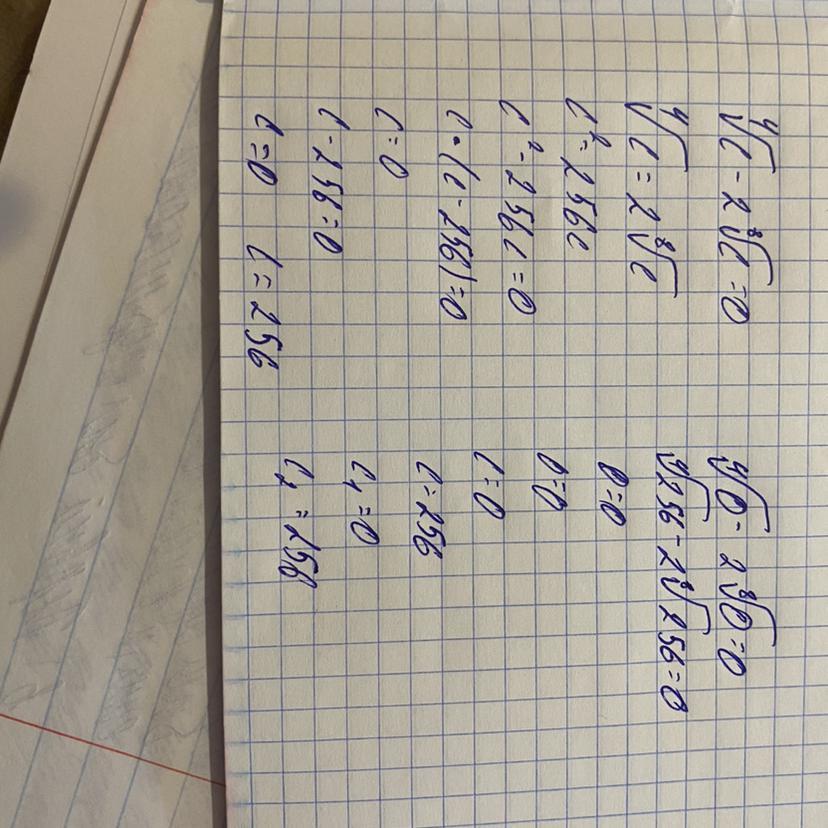 ⁴√c - 2 ⁸√c = 0
⁴√c = 2 ⁸√c
c² = 256c
c² - 256c = 0
c · (c - 256) = 0
c = 0
c - 256 = 0
c = 0 c = 256
⁴√0 - 2 ⁸√0 = 0
⁴√256 - 2 ⁸√256 = 0
0 = 0
0 = 0
c = 0
c = 256
c₁ = 0
c₂ = 256